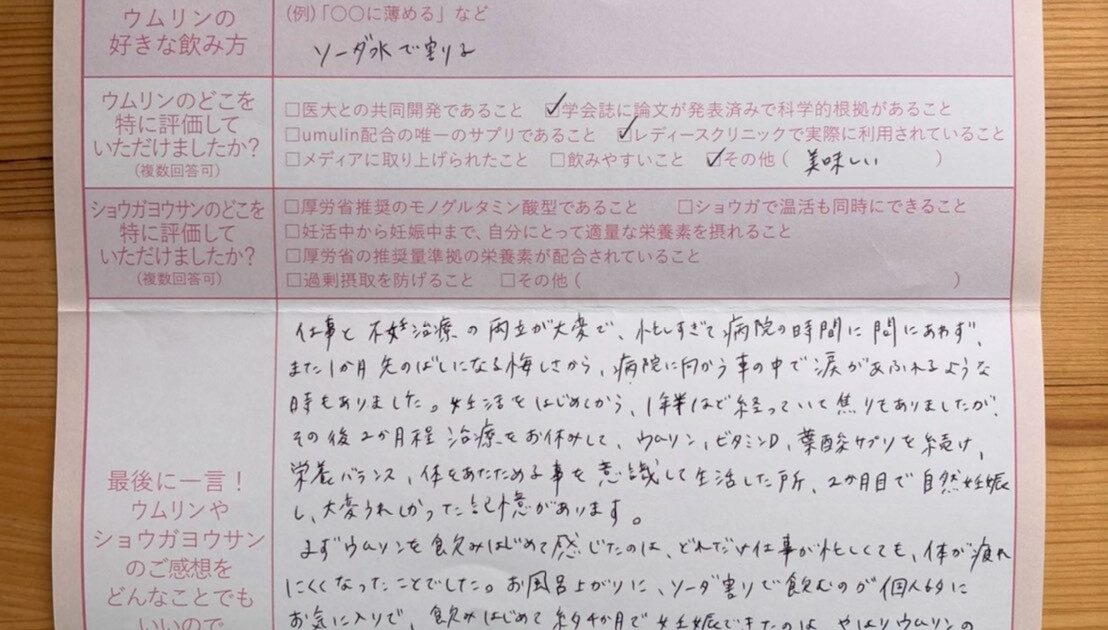 ウムリンの
好きな飲み方
(例)「〇〇に薄める」など
ソーダ水で割る
ウムリンのどこを
特に評価して
いただけましたか?
(複数回答可)
□医大との共同開発であること ☑学会誌に論文が発表済みで科学的根拠があること
□umulin配合の唯一のサプリであること ☑レディースクリニックで実際に利用されていること
□メディアに取り上げられたこと □飲みやすいこと ☑その他( 美味しい )
ショウガヨウサンのどこを
特に評価して
いただけましたか?
(複数回答可)
□厚労省推奨のモノグルタミン酸型であること □ショウガで温活も同時にできること
□妊活中から妊娠中まで、自分にとって適量な栄養素を摂れること
□厚労省の推奨量準拠の栄養素が配合されていること
□過剰摂取を防げること □その他( )
最後に一言!
ウムリンや
ショウガヨウサン
のご感想を
どんなことでも
いいので
仕事と不妊治療の両立が大変で、忙しすぎて病院の時間に間にあわず、
また1か月先のばしになる悔しさから、病院に向かう車の中で涙があふれるような
時もありました。妊活をはじめてから、1年半ほど経っていて焦りもありましたが、
その後2か月程治療をお休みして、ウムリン、ビタミンD、葉酸サプリを続け、
栄養バランス、体をあたためる事を意識して生活した所、2か月目で自然妊娠
し、大変うれしかった記憶があります。
まずウムリンを飲みはじめて感じたのは、どれだけ仕事が忙しくても、体が疲れ
にくくなったことでした。お風呂上がりに、ソーダ割りで飲むのが個人的に
お気に入りで、飲みはじめて約4か月で妊娠できたのは、やはりウムリンの